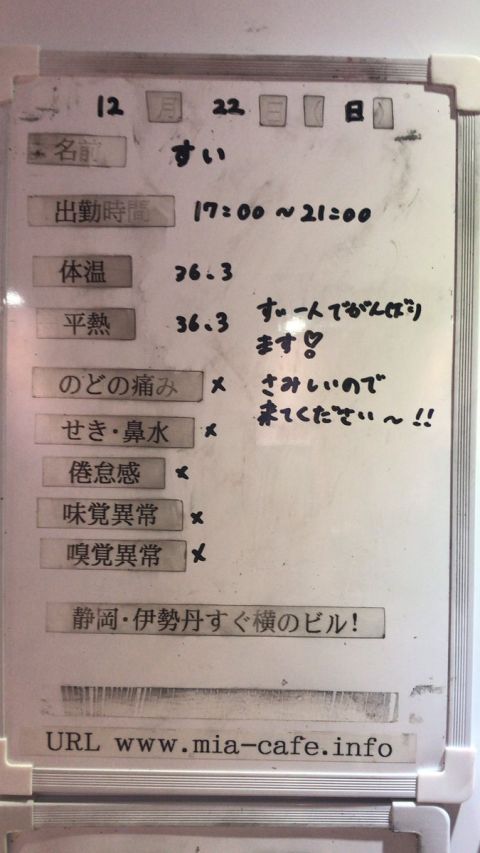 12 月 22 日 ( 日 )
名前 すい
出勤時間 17:00 ~ 21:00
体温 36.3
平熱 36.3
すい一人でがんばり
ます!
のどの痛み ×
さみしいので
来てください~!!
せき・鼻水 ×
倦怠感 ×
味覚異常 ×
嗅覚異常 ×
静岡・伊勢丹すぐ横のビル!
URL www.mia-cafe.info